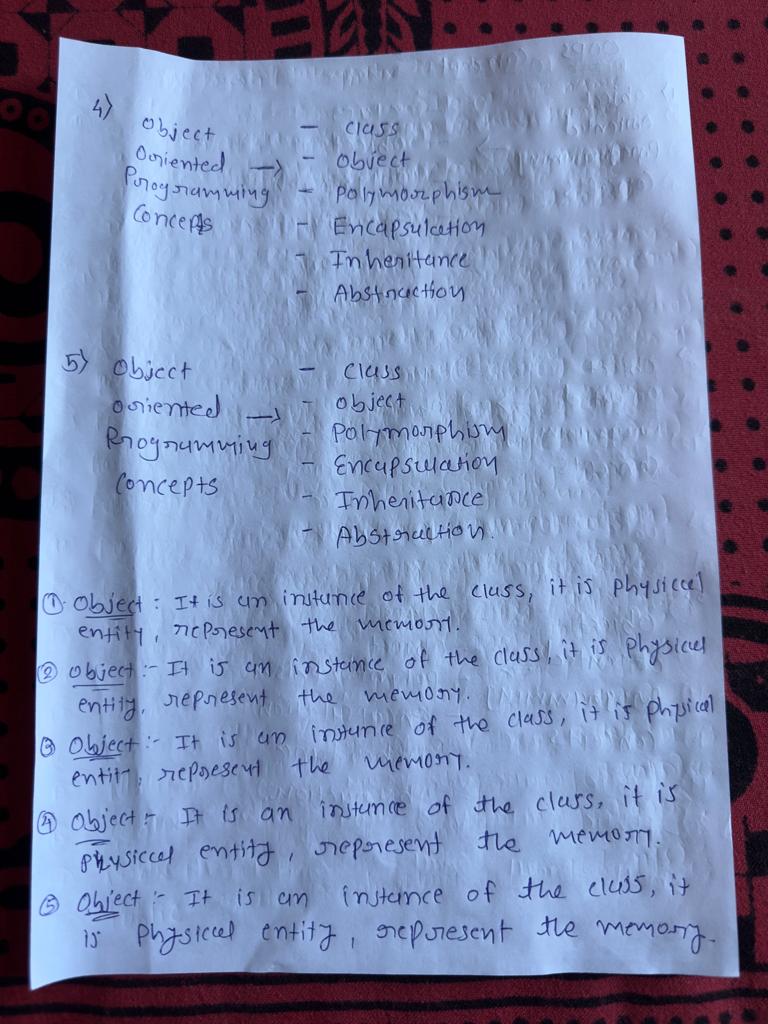 4)
Object - class
Ooriented → - Object
Programming - Polymorphism
Concepts - Encapsulation
- Inheritance
- Abstraction
5) Object - class
Ooriented → - Object
Programming - Polymorphism
Concepts - Encapsulation
- Inheritance
- Abstraction.
① Object : It is an instance of the class, it is physical
entity, represent the memory.
② Object :- It is an instance of the class, it is physical
entity, represent the memory.
③ Object :- It is an instance of the class, it is physical
entity, represent the memory.
④ Object :- It is an instance of the class, it is
physical entity, represent the memory.
⑤ Object :- It is an instance of the class, it
is physical entity, represent the memory.